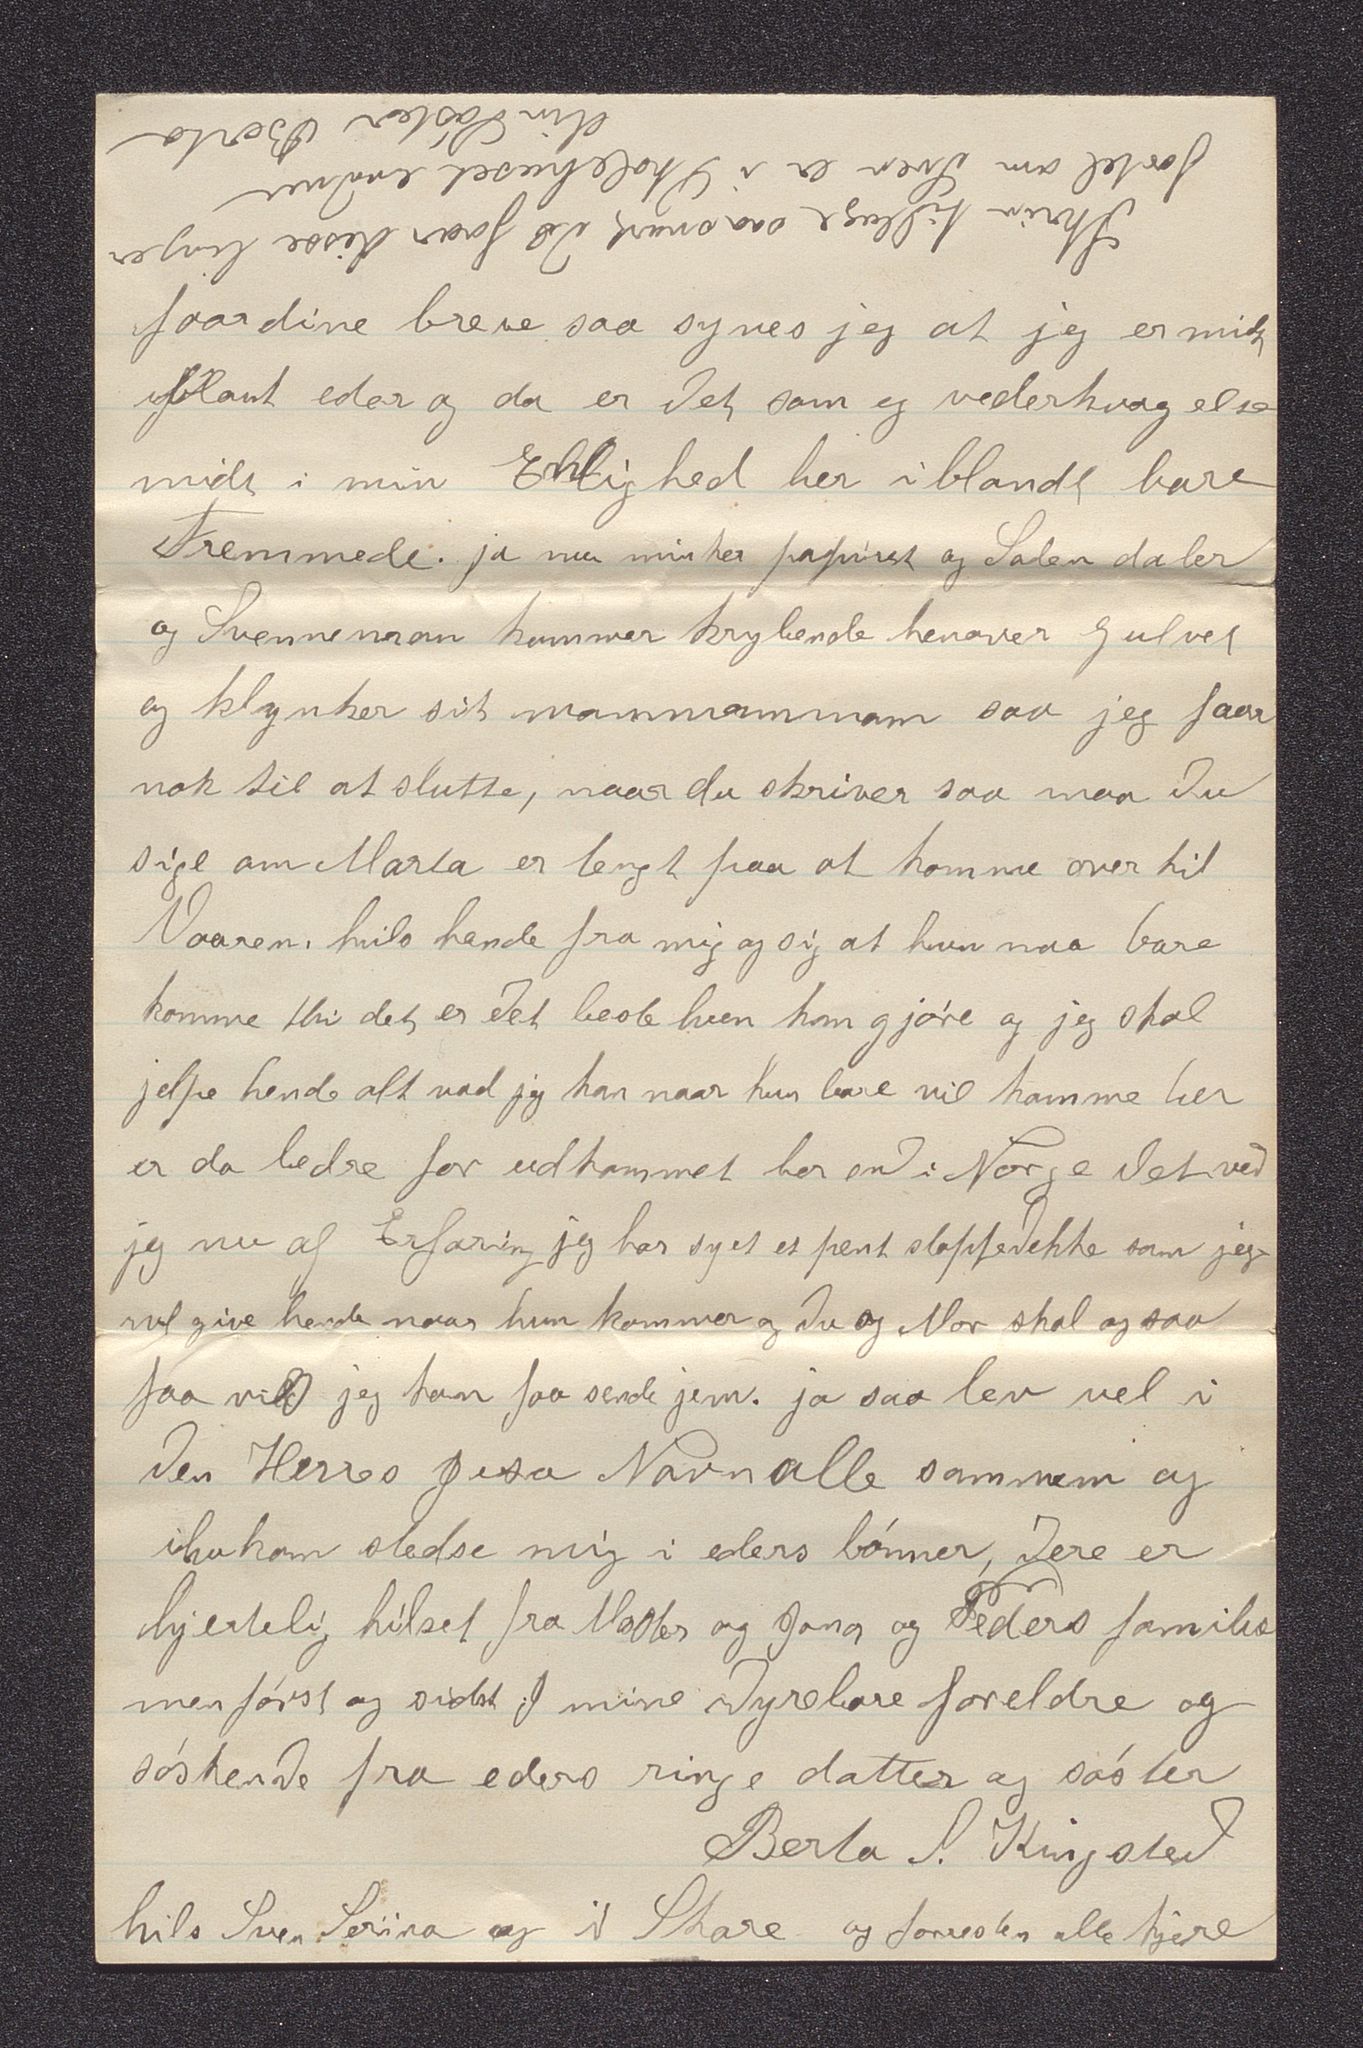 Skriv tilbage saa snart du faar disse linjer
fortel om Sven er i Skolehuset endnu
din Søster Berta
faar dine breve saa synes jeg at jeg er midt
iblant eder og da er det som eg vederkvagelse
midt i min Enlighed her iblandt bare
Fremmede. ja nu minker papiret og Solen daler
og Svenneman kommer krybende henover Gulvet
og klynker sit mammammam saa jeg faar
nok til at slutte, naar du skriver saa maa du
sige om Marta er tengt paa at komme over til
Vaaren. hils hende fra mig og sig at hun maa bare
komme thi det er det beste hun kan gjóre og jeg skal
jelpe hende alt vad jeg kan naar hun bare vil komme her
er da bedre for udkommet her end i Norge det ved
jeg nu af Erfaring jeg har syet et pent stoppedekke som jeg
vil give hende naar hun kommer og du og Mor skal og saa
faa vis jeg kan faa sende jem. ja saa lev vel i
den Herres Jesu Navn alle sammen og
ihukom stedse mig i eders bónner, dere er
hjertelig hilset fra Moster og Jona og Peders familie
men fórst og sidst I mine dyrebare foreldre og
sóskende fra eders ringe datter og sóster
Berta S. Kingsted
hils Sven Seriina og i Skare og forresten alle kjere